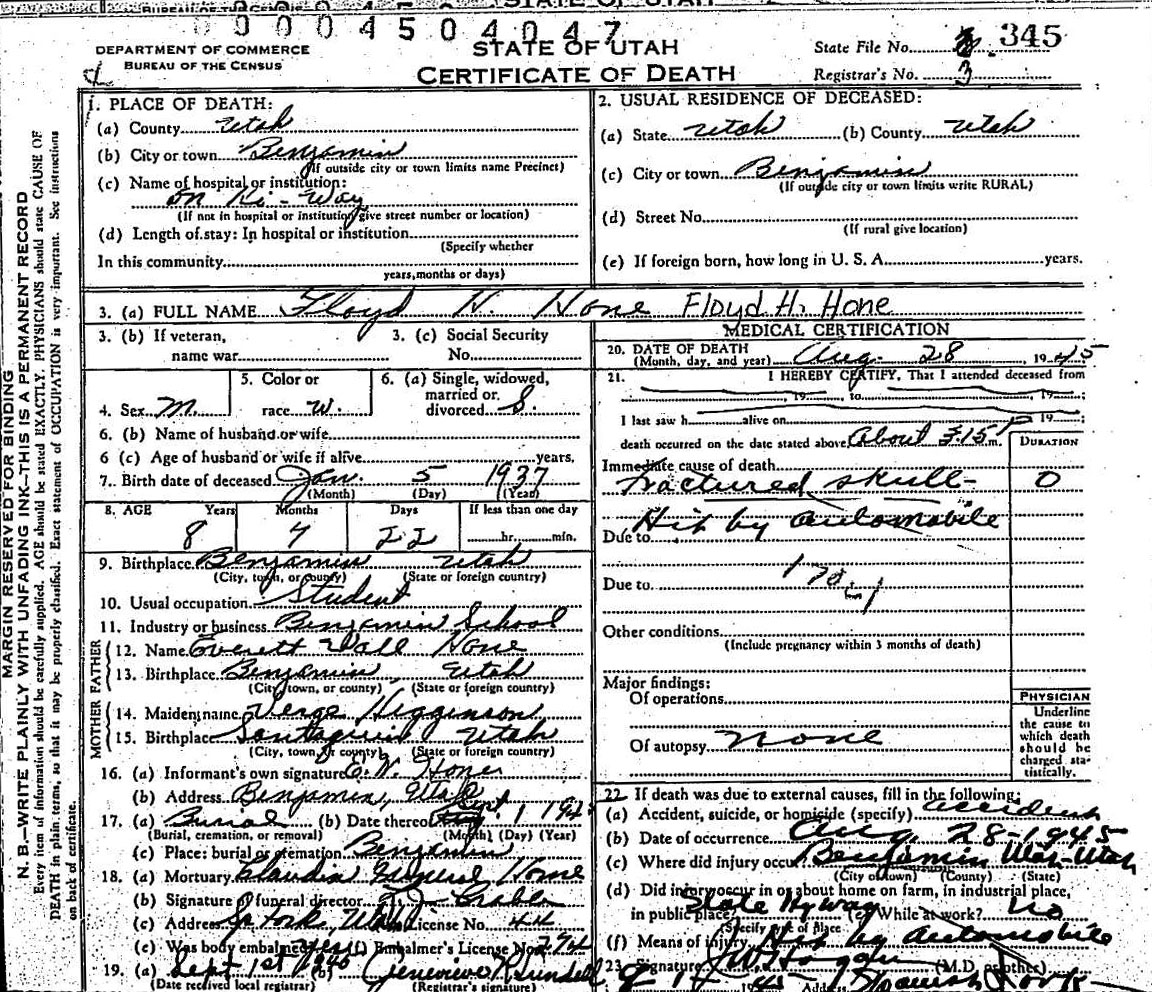 0 0 0 0 4 5 0 4 0 4 7
DEPARTMENT OF COMMERCE
BUREAU OF THE CENSUS
STATE OF UTAH
CERTIFICATE OF DEATH
State File No. 345
Registrar's No. 3
1. PLACE OF DEATH:
(a) County Utah
(b) City or town Benjamin
(If outside city or town limits name Precinct)
(c) Name of hospital or institution:
on Hi-Way
(If not in hospital or institution give street number or location)
(d) Length of stay: In hospital or institution
(Specify whether
In this community
years, months or days)
2. USUAL RESIDENCE OF DECEASED:
(a) State Utah (b) County Utah
(c) City or town Benjamin
(If outside city or town limits write RURAL)
(d) Street No.
(If rural give location)
(e) If foreign born, how long in U. S. A. years.
3. (a) FULL NAME Floyd H. Hone Floyd H. Hone
3. (b) If veteran, 3. (c) Social Security
name war No.
4. Sex M. 5. Color or race W. 6. (a) Single, widowed, married or divorced S.
6. (b) Name of husband or wife
6 (c) Age of husband or wife if alive years,
7. Birth date of deceased Jan. 5 1937
(Month) (Day) (Year)
8. AGE Years Months Days If less than one day
8 7 22 hr. min.
9. Birthplace Benjamin Utah
(City, town, or county) (State or foreign country)
10. Usual occupation Student
11. Industry or business Benjamin School
FATHER
12. Name Everett Wall Hone
13. Birthplace Benjamin, Utah
(City, town, or county) (State or foreign country)
MOTHER
14. Maiden name Verge Higginson
15. Birthplace Santaquin Utah
(City, town, or county) (State or foreign country)
16. (a) Informant's own signature E. W. Hone
(b) Address Benjamin, Utah
17. (a) Burial (b) Date thereof Sept. 1 194
(Burial, cremation, or removal) (Month) (Day) (Year)
(c) Place: burial or cremation Benjamin
18. (a) Mortuary Claudin Funeral Home
(b) Signature of funeral director
(c) Address Sp Fork, Utah License No. 44
(e) Was body embalmed yes (f) Embalmer's License No. 294
19. (a) Sept 1st 1945 (b) Genevieve R. Lundell
(Date received local registrar) (Registrar's signature)
MEDICAL CERTIFICATION
20. DATE OF DEATH
(Month, day, and year) Aug. 28, 1945
21. I HEREBY CERTIFY, That I attended deceased from
, 19 to , 19 ;
I last saw h alive on 19 ;
death occurred on the date stated above, About 3:15 P m.
DURATION
Immediate cause of death
Fractured skull- 0
Hit by automobile
Due to
Due to
Other conditions
(Include pregnancy within 3 months of death)
Major findings:
Of operations
Of autopsy none
PHYSICIAN
Underline
the cause to
which death
should be
charged sta-
tistically.
22 If death was due to external causes, fill in the following:
(a) Accident, suicide, or homicide (specify) accident
(b) Date of occurrence Aug. 28-1945
(c) Where did injury occur Benjamin Utah-Utah
(City or town) (County) (State)
(d) Did injury occur in or about home on farm, in industrial place,
in public place? State Hyway (e) While at work? No
(Specify type of place
(f) Means of injury Hit by automobile
23. Signature J W Hagan (M.D. or other)
Address Spanish Fork
MARGIN RESERVED FOR BINDING
N. B.—WRITE PLAINLY WITH UNFADING INK—THIS IS A PERMANENT RECORD
Every item of information should be carefully supplied. AGE should be stated EXACTLY. PHYSICIANS should state CAUSE OF
DEATH in plain terms, so that it may be properly classified. Exact statement of OCCUPATION is very important. See instructions
on back of certificate.